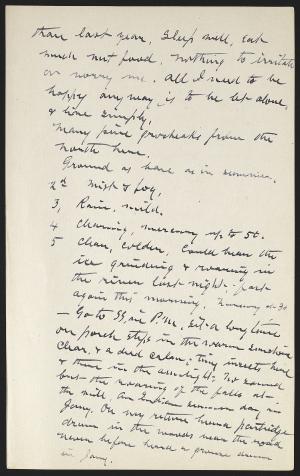 than last year, sleep well, eat
much nut food. Nothing to irritate
or worry me. All I need to be
happy anyway is to be let alone,
& live simply,
Many pine grosbeaks from the
north here.
Ground as bare as in summer.
2d Mist & fog,
3, Rain, mild.
4 Clearing, mercury up to 50.
5 Clear, colder, Could hear the
ice grinding & roaring in
the river last night - fast
again this morning. Mercury at 30
- Go to SS, in P.M. sit a long time
on porch steps in the warm sunshine
Clear, & a dead calm; tiny insects here
& there in the sunlight. No sound
but the roaring of the falls at
the mill, An Indian summer day in
Jany. On my return hear a partridge
drum in the woods near the road
never before heard a grouse drum
in Jany.